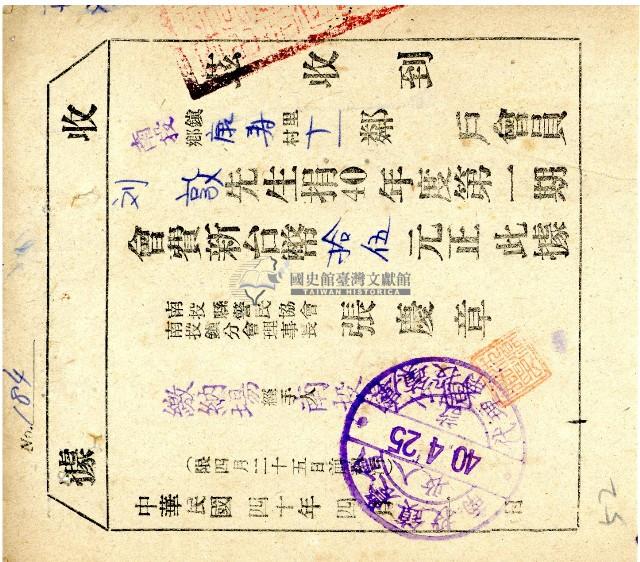 收據
茲收到
南投 鄉鎮 康壽 村里 十一 鄰 戶會員
刘敬先生捐40年度第一期
會費新台幣拾伍元正此據
南投縣警民協會
南投鎮分會理事長 張慶章
繳納場 經手人 南投
(限四月二十五日前
中華民國四十年四月 日
No. 184
40.4.25
收入
國史館臺灣文獻館
TAIWAN HISTORICA
25